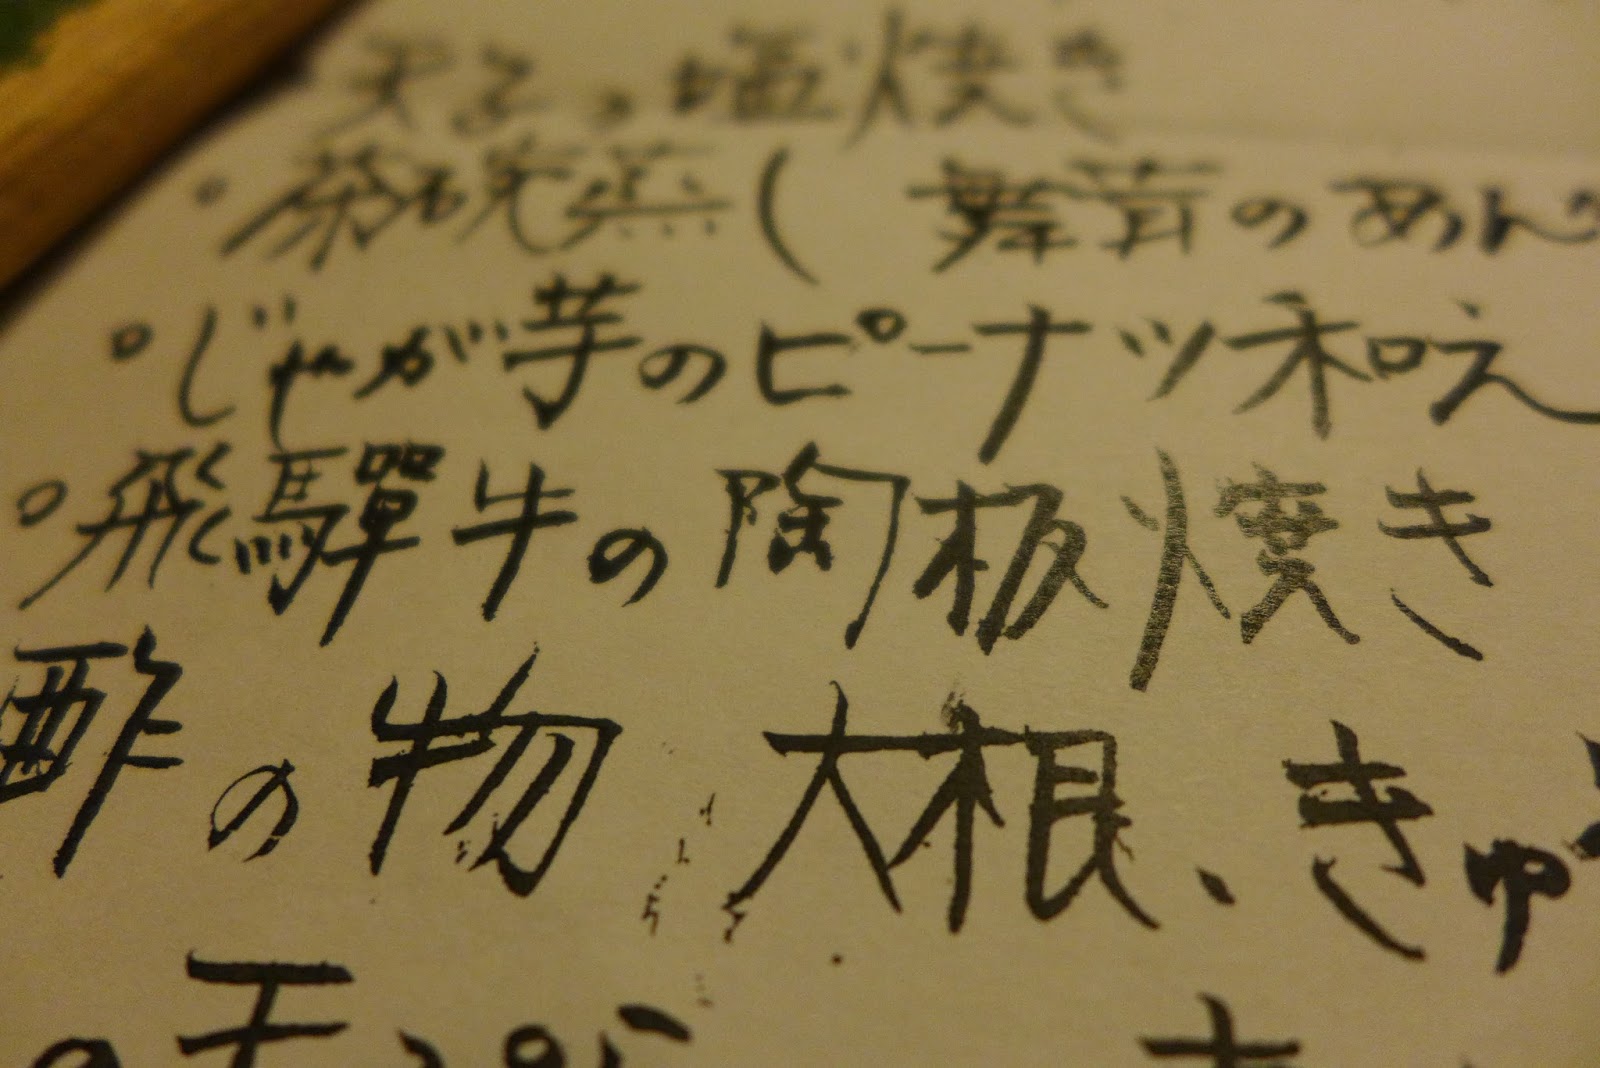 天子の塩焼き
・茶碗蒸(舞茸のあん
・じゃが芋のピーナッツ和え
・飛騨牛の陶板焼き
酢の物 大根、きゅ
の天ぷら